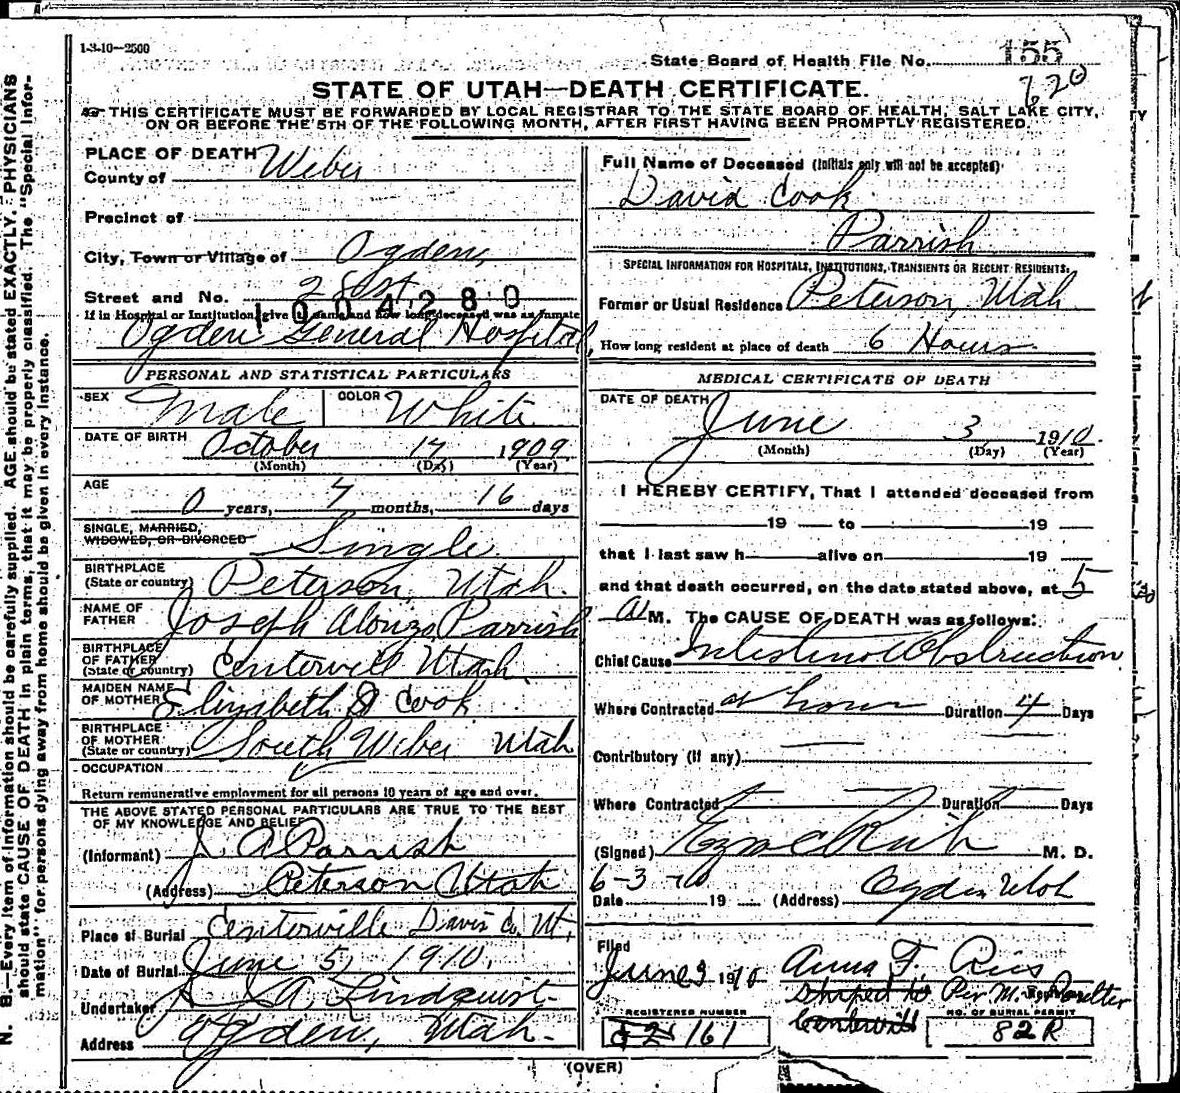 1-3-10—2500
State Board of Health File No. 155
620
STATE OF UTAH—DEATH CERTIFICATE.
THIS CERTIFICATE MUST BE FORWARDED BY LOCAL REGISTRAR TO THE STATE BOARD OF HEALTH, SALT LAKE CITY,
ON OR BEFORE THE 5TH OF THE FOLLOWING MONTH, AFTER FIRST HAVING BEEN PROMPTLY REGISTERED.
PLACE OF DEATH
County of Weber
Precinct of
City, Town or Village of Ogden,
Street and No. 28 st
1004280
If in Hospital or Institution, give name and how long deceased was an inmate
Ogden General Hospital,
PERSONAL AND STATISTICAL PARTICULARS
SEX Male COLOR White
DATE OF BIRTH October 17 1909
(Month) (Day) (Year)
AGE
0 years, 7 months, 16 days
SINGLE, MARRIED,
WIDOWED, OR DIVORCED Single
BIRTHPLACE
(State or country) Peterson, Utah.
NAME OF
FATHER Joseph Alonzo Parrish
BIRTHPLACE
OF FATHER
(State or country) Centervill Utah.
MAIDEN NAME
OF MOTHER Elizabeth D Cook
BIRTHPLACE
OF MOTHER
(State or country) South Weber Utah
OCCUPATION
Return remunerative employment for all persons 10 years of age and over.
THE ABOVE STATED PERSONAL PARTICULARS ARE TRUE TO THE BEST
OF MY KNOWLEDGE AND BELIEF
(Informant) J. A Parrish
(Address) Peterson Utah
Place of Burial Centerville Davis Co. Ut.
Date of Burial June 5, 1910.
Undertaker Lindquist
Address Ogden, Utah.
Full Name of Deceased (Initials only will not be accepted)
David Cook
Parrish
SPECIAL INFORMATION FOR HOSPITALS, INSTITUTIONS, TRANSIENTS OR RECENT RESIDENTS.
Former or Usual Residence Peterson, Utah
How long resident at place of death 6 Hours.
MEDICAL CERTIFICATE OF DEATH
DATE OF DEATH
June 3, 1910.
(Month) (Day) (Year)
I HEREBY CERTIFY, That I attended deceased from
19 to 19
that I last saw h alive on 19
and that death occurred, on the date stated above, at 5
a M. The CAUSE OF DEATH was as follows:
Chief Cause Intestinal Obstruction
Where Contracted at home Duration 4 Days
Contributory (if any)
Where Contracted Duration Days
(Signed) Rich M. D.
6-3-10
Date 19 (Address) Ogden Utah
Filed
June 3 1910 Anna F. Ries
Shiped to Per M.
Centervill
REGISTERED NUMBER
161
NO. OF BURIAL PERMIT
82R
(OVER)
N. B.—Every item of information should be carefully supplied. AGE should be stated EXACTLY. PHYSICIANS
should state CAUSE OF DEATH in plain terms, that it may be properly classified. The "Special Infor-
mation" for persons dying away from home should be given in every instance.